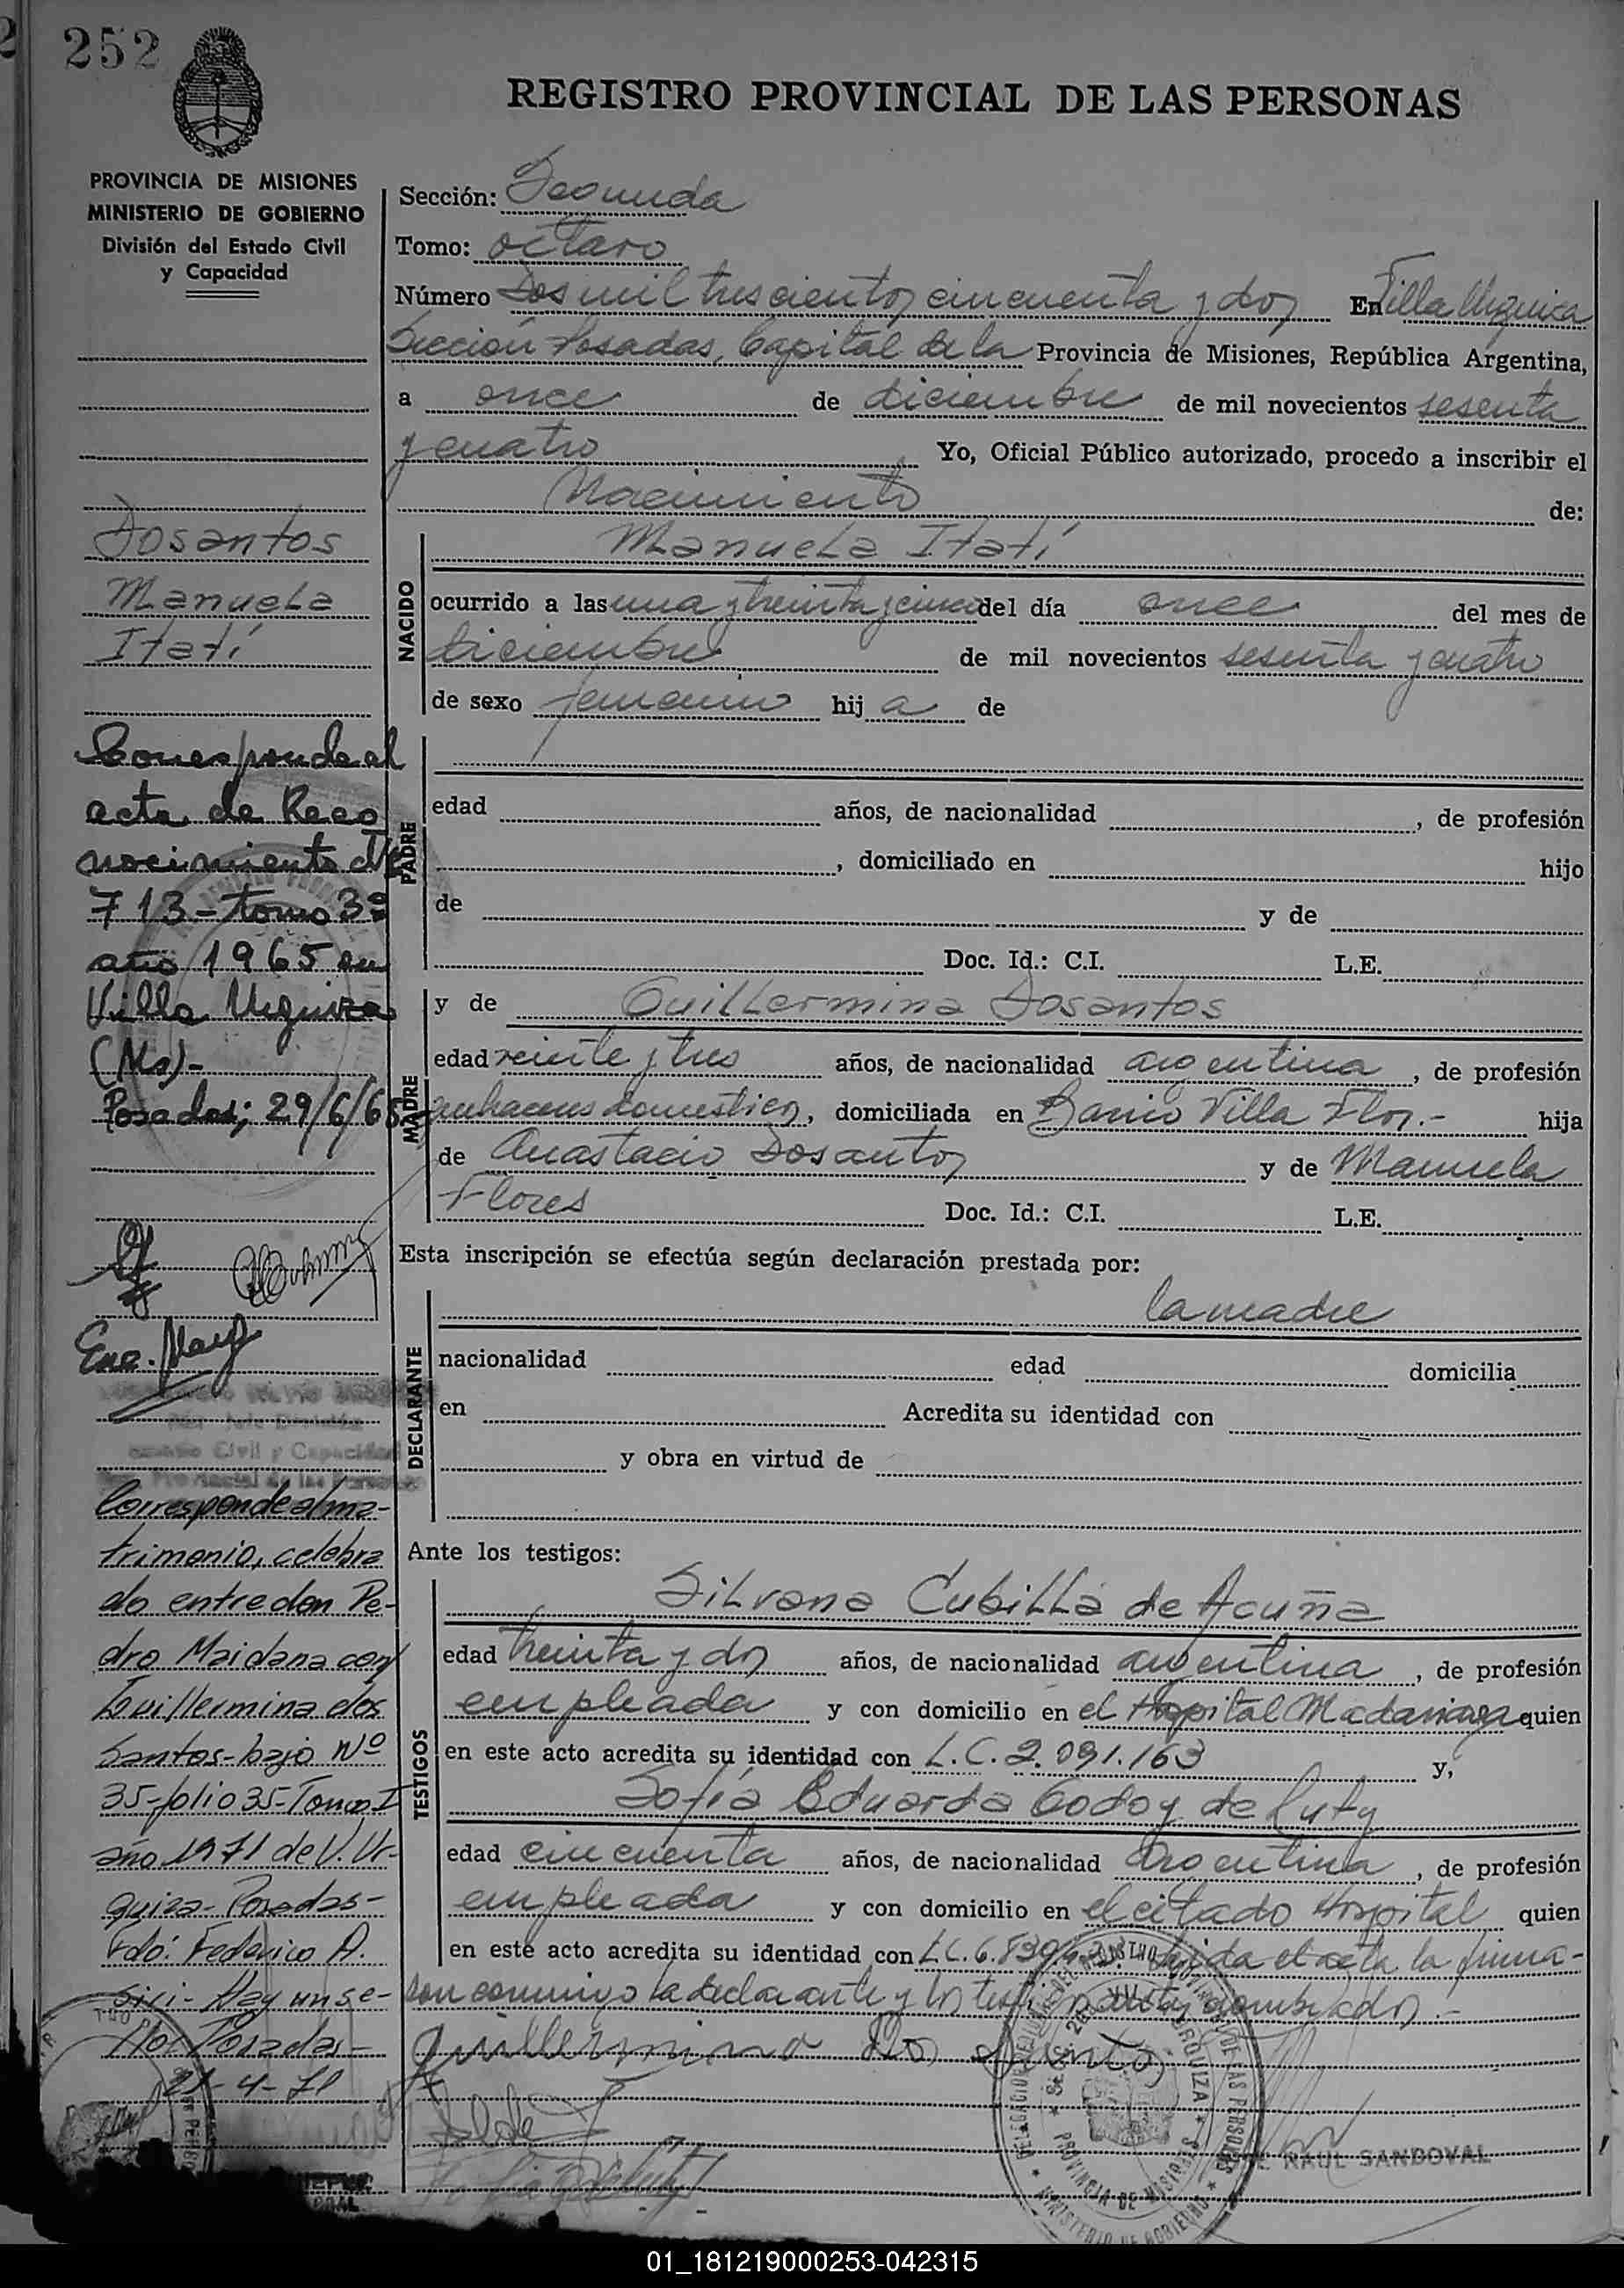 252
REGISTRO PROVINCIAL DE LAS PERSONAS
PROVINCIA DE MISIONES
MINISTERIO DE GOBIERNO
División del Estado Civil
y Capacidad
Sección: Segunda
Tomo: octavo
Número Dos mil trescientos cincuenta y dos En Villa Urquiza
Sección Posadas, Capital de la Provincia de Misiones, República Argentina,
a once de diciembre de mil novecientos sesenta
y cuatro Yo, Oficial Público autorizado, procedo a inscribir el
Nacimiento de:
Dosantos
Manuela
Itatí
NACIDO
Manuela Itatí
ocurrido a las una y treinta y cinco del día once del mes de
diciembre de mil novecientos sesenta y cuatro
de sexo femenino hij a de
Corresponde al
acta de Reco
nocimiento Nº
713 - tomo 3º
año 1965 en
Villa Urquiza
(Ms)-
Posadas; 29/6/65
PADRE
edad años, de nacionalidad , de profesión
, domiciliado en hijo
de y de
Doc. Id.: C.I. L.E.
MADRE
y de Guillermina Dosantos
edad veinte y tres años, de nacionalidad argentina, de profesión
quehaceres domesticos, domiciliada en Barrio Villa Flor.- hija
de Anastacio Dosantos y de Manuela
Flores Doc. Id.: C.I. L.E.
Esta inscripción se efectúa según declaración prestada por:
DECLARANTE
la madre
nacionalidad edad domicilia
en Acredita su identidad con
y obra en virtud de
Civil y Capacidad
Corresponde al ma-
trimonio, celebra
do entre don Pe-
dro Maidana con
Guillermina dos
Santos - bajo Nº
35 - folio 35 - Tomo I
año 1971 de V. Ur-
quiza - Posadas -
Fdo: Federico A.
Hay un se-
llo: Posadas -
21-4-71
Ante los testigos:
TESTIGOS
Silvana Cubilla de Acuña
edad treinta y dos años, de nacionalidad argentina, de profesión
empleada y con domicilio en el Hospital Madariaga quien
en este acto acredita su identidad con L.C. 2.091.163 y,
Sofía Eduarda Godoy de
edad cincuenta años, de nacionalidad Argentina, de profesión
empleada y con domicilio en el citado Hospital quien
en este acto acredita su identidad con L.C. 6.839. Leida el acta la firma-
ron conmigo la declarante y los testigos
Guillermina Dos Santos
PROVINCIA DE MISIONES
MINISTERIO DE GOBIERNO
RAUL SANDOVAL
01_181219000253-042315